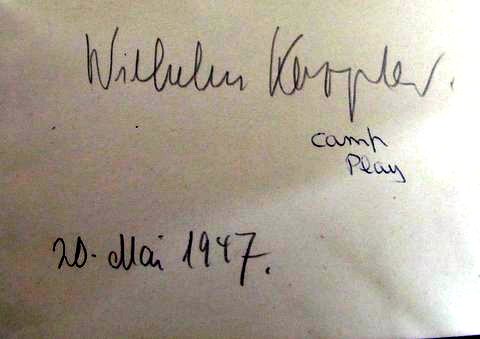 Wilhelm Keppler.
camp
Play
20. Mai 1947.